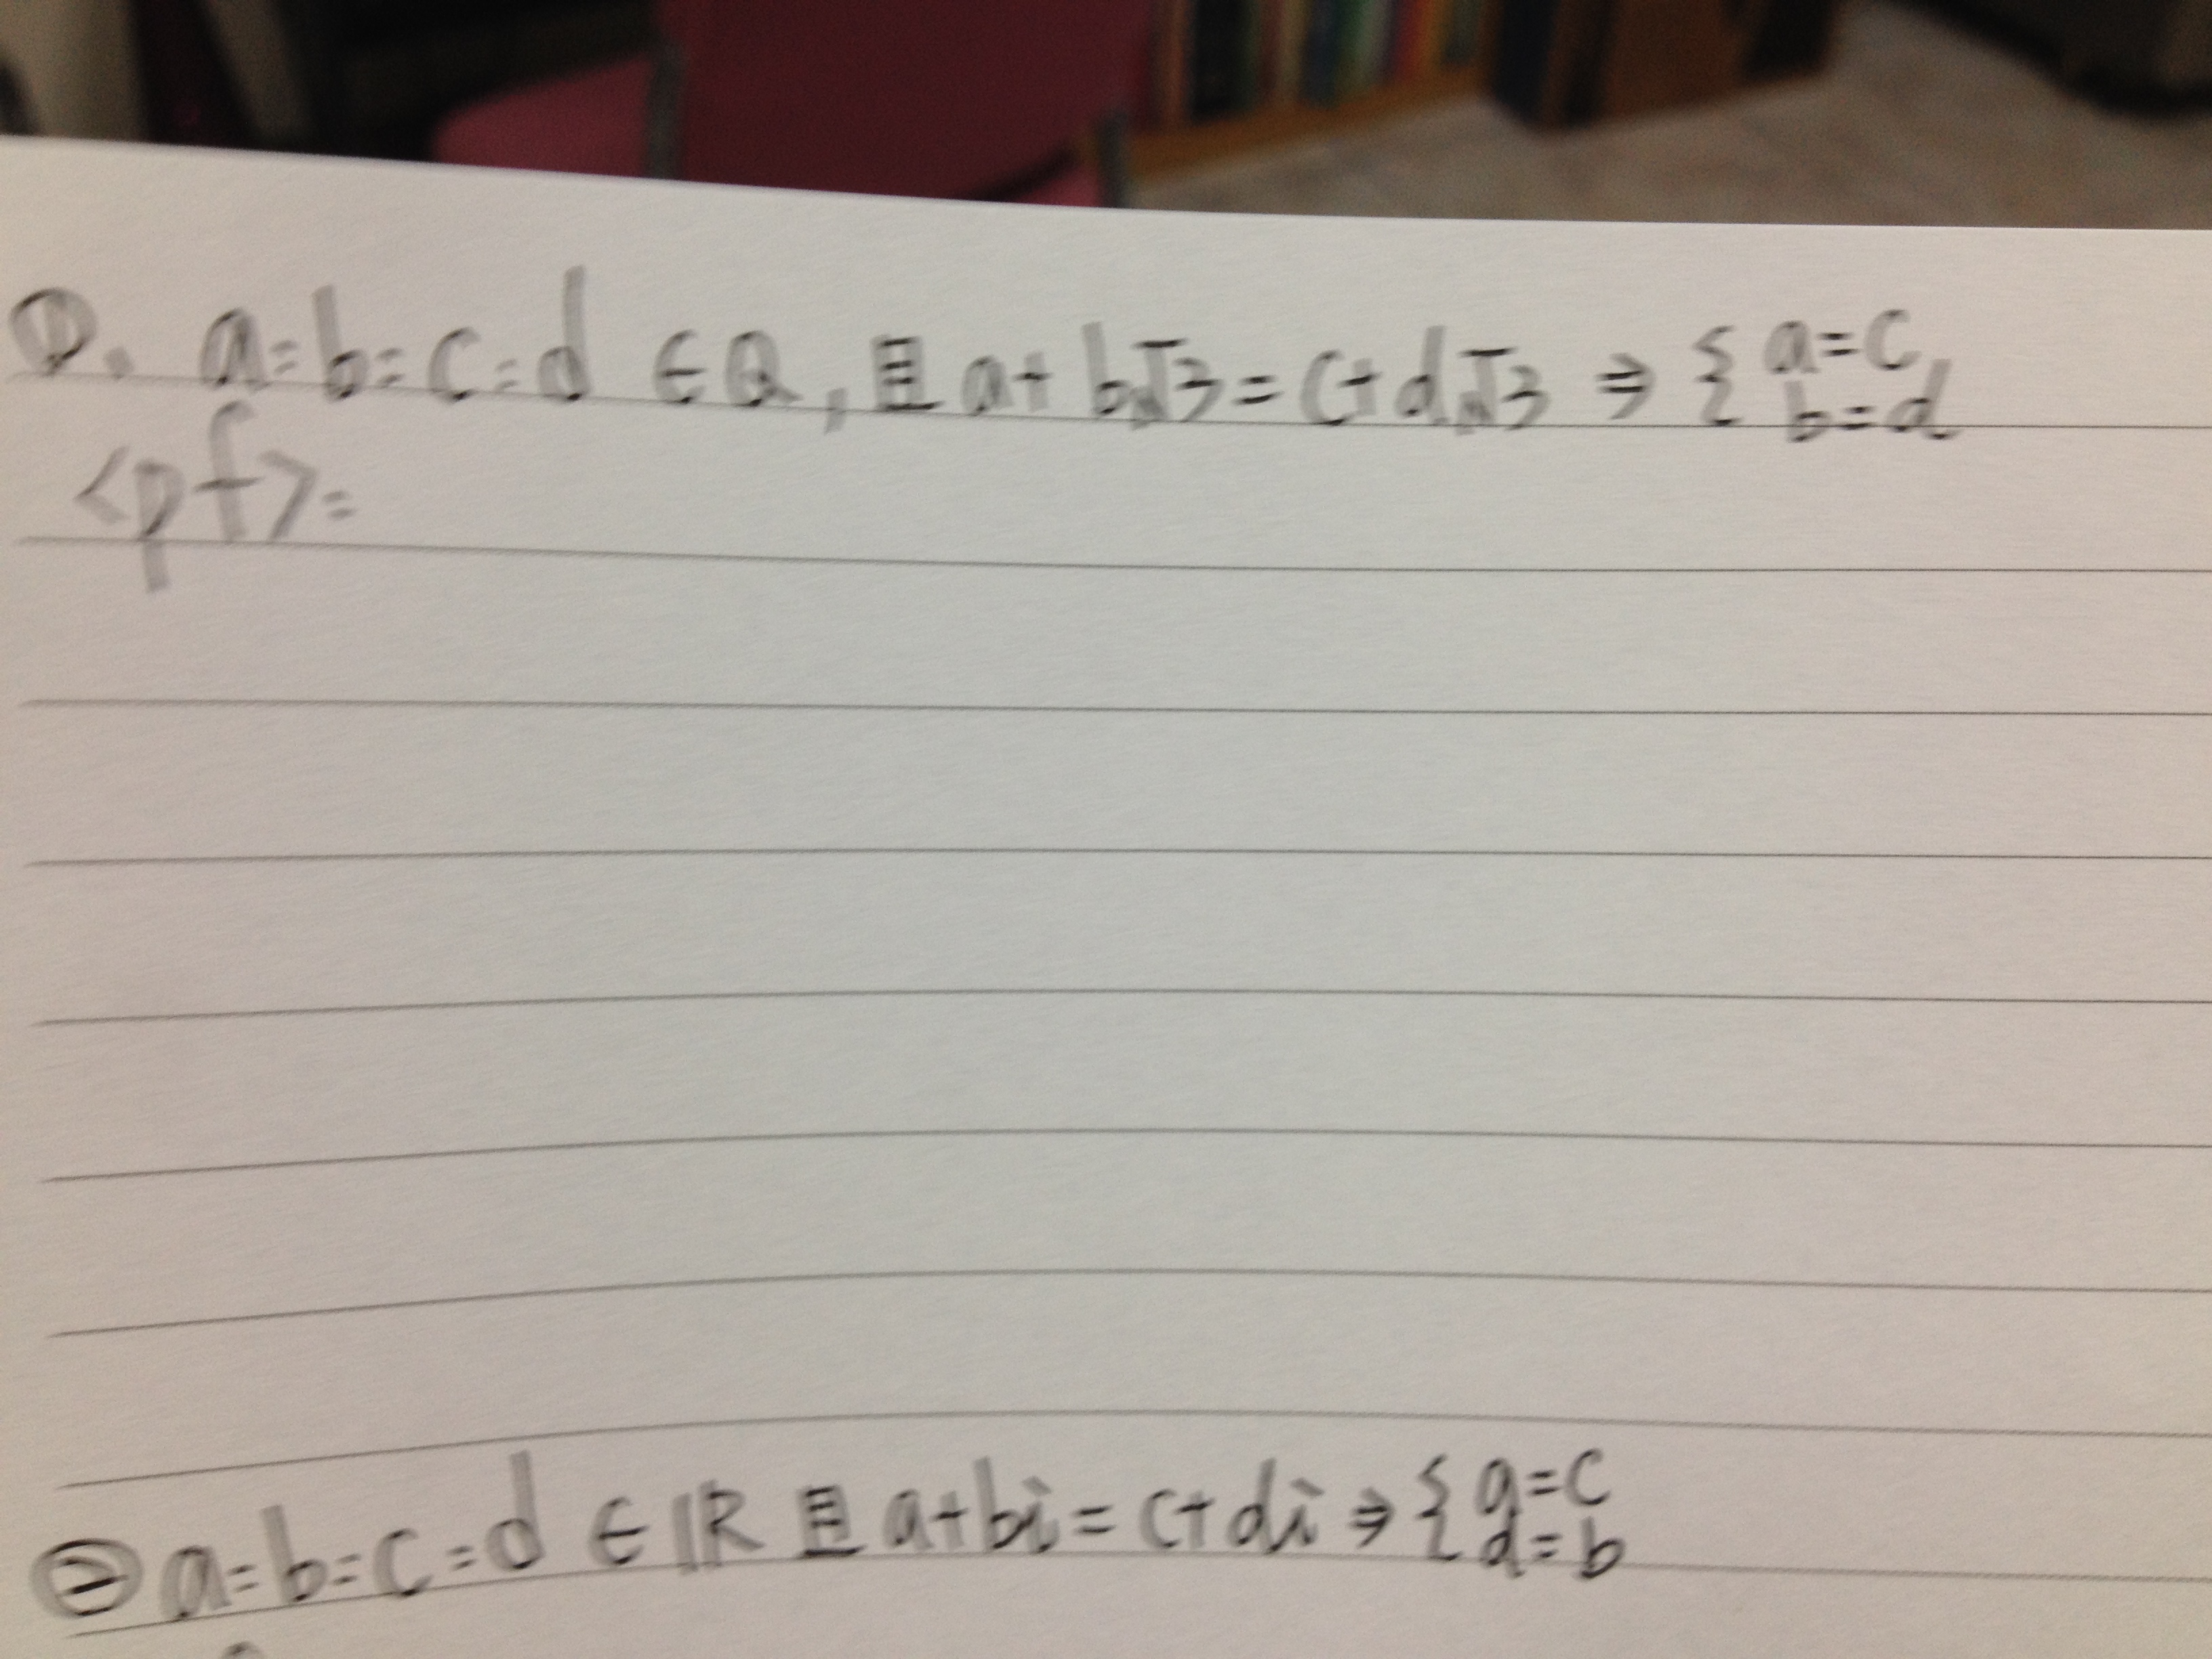 ①. a=b=c=d ∈Q, 且 a+b√3=c+d√3 ⇒ { a=c, b=d
<pf>=
② a=b=c=d ∈ℝ 且 a+bi=c+di ⇒ { a=c d=b